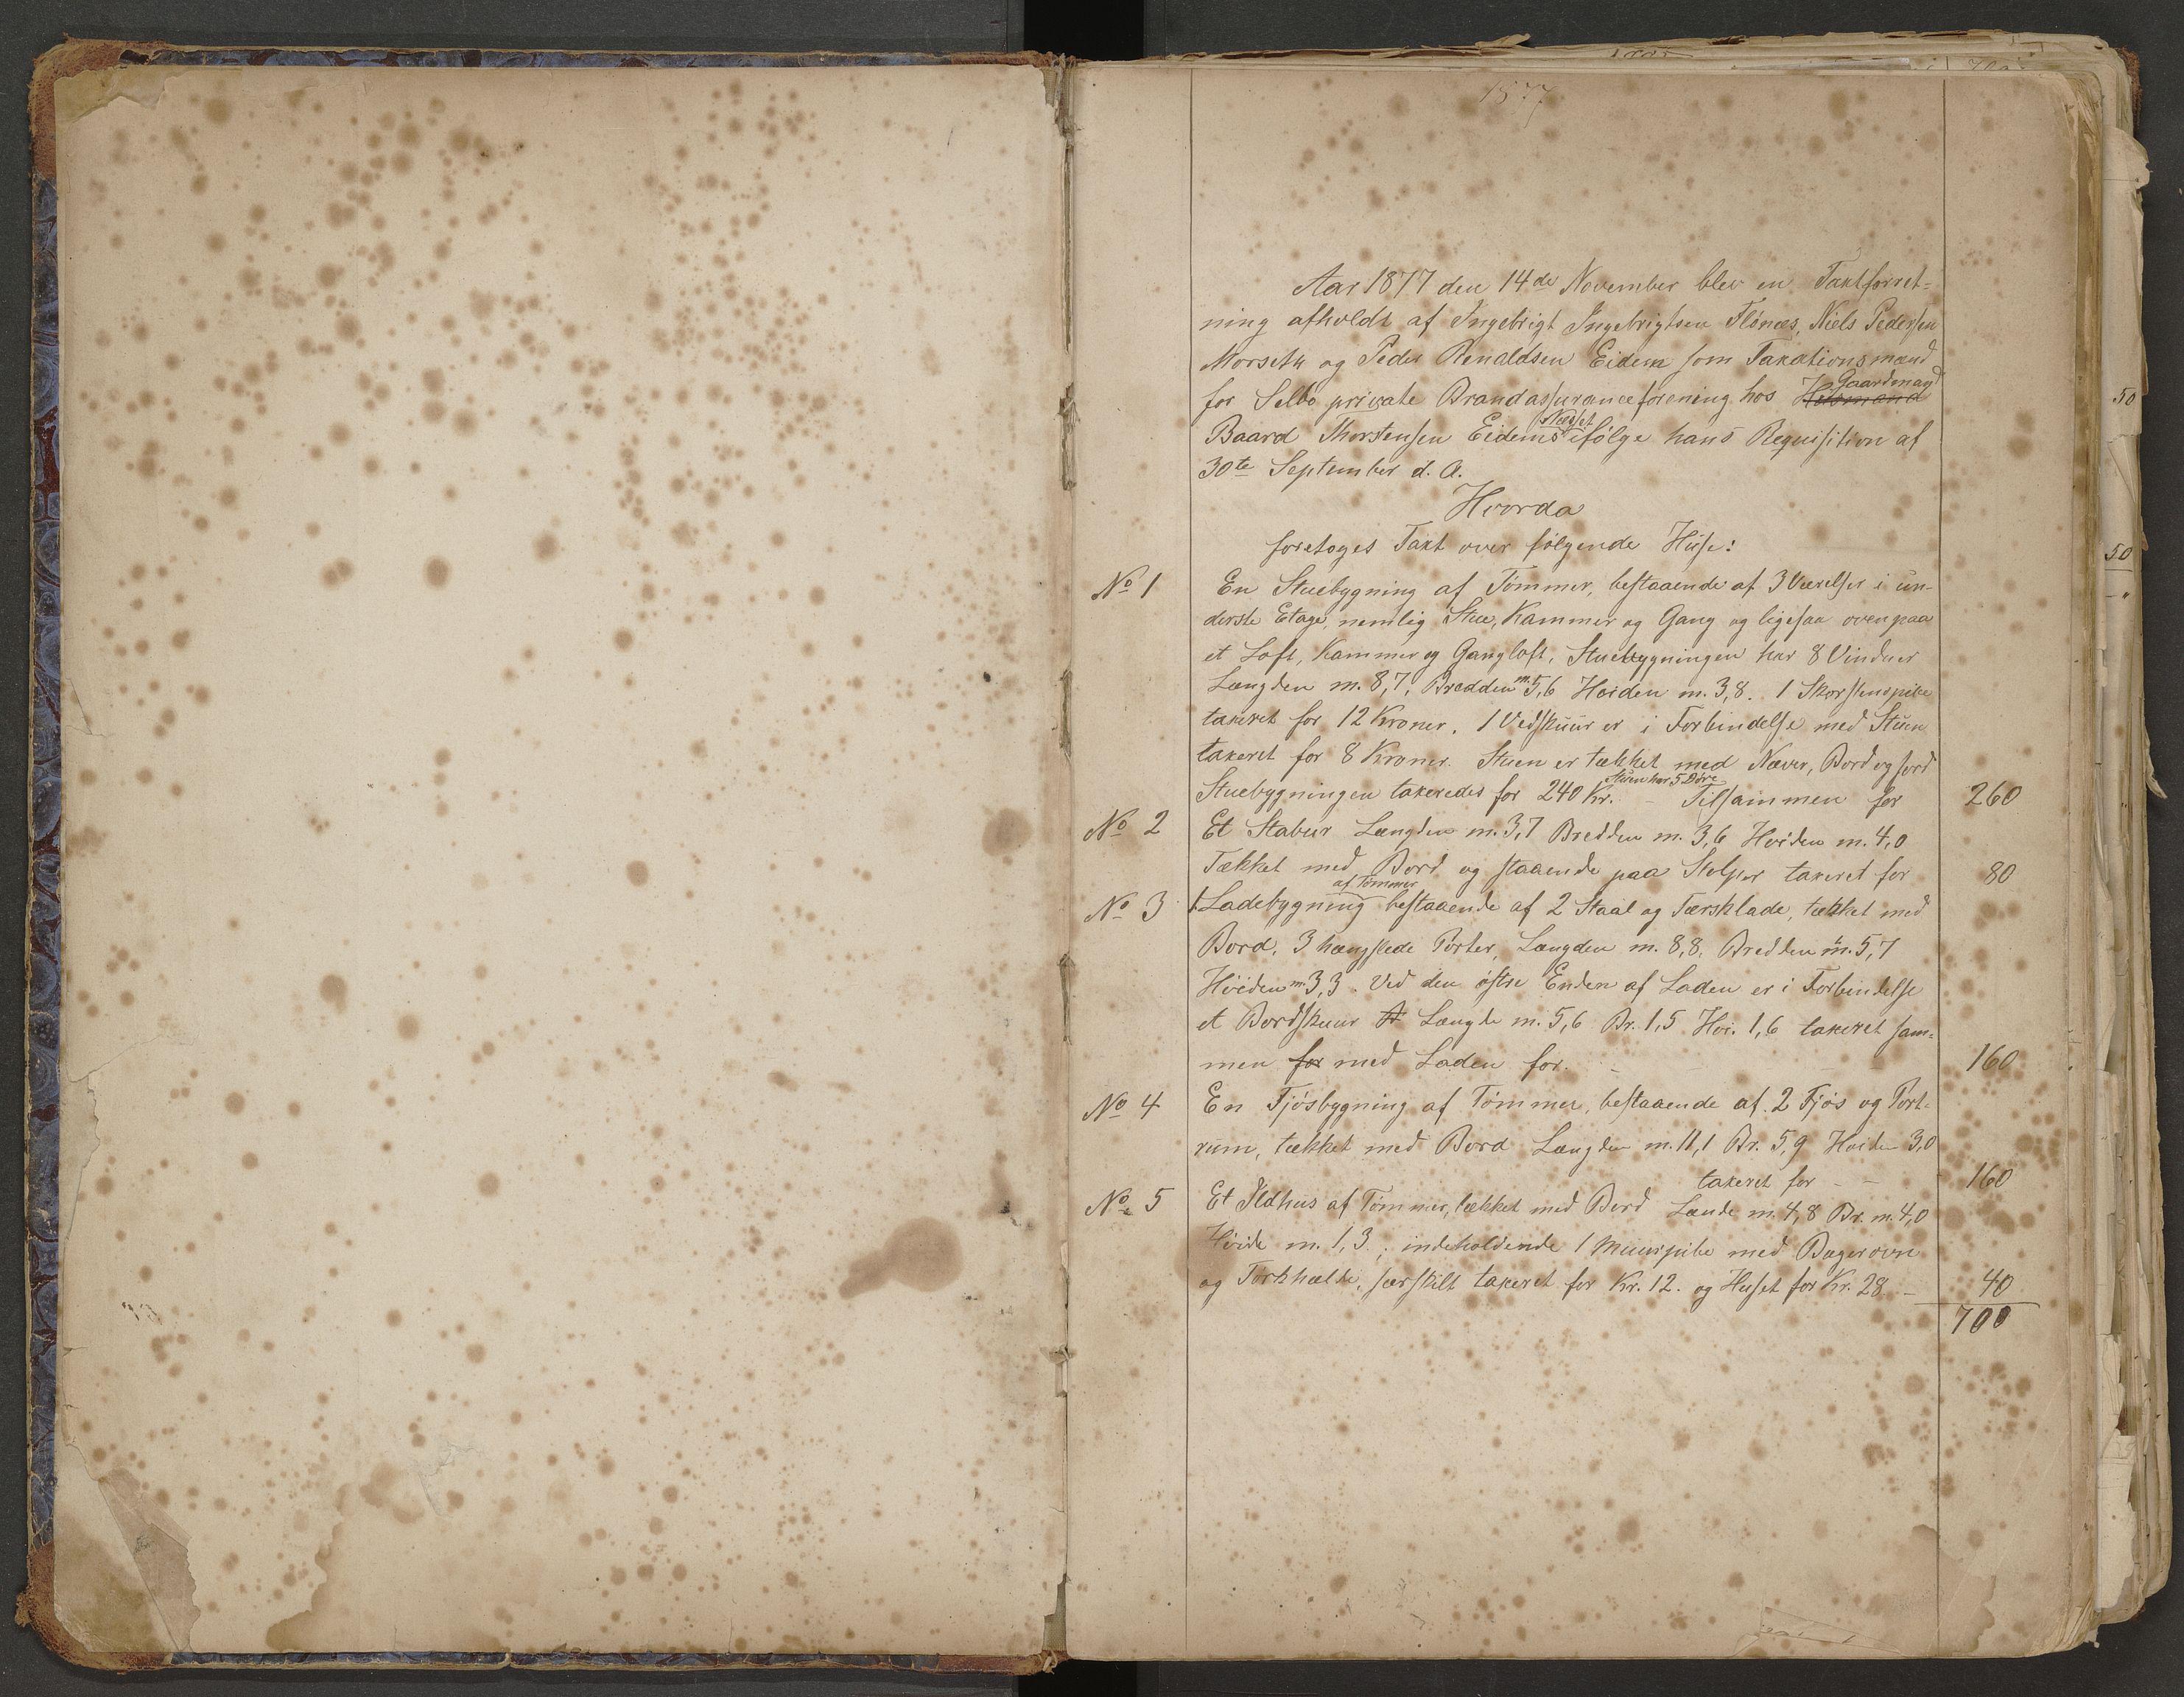 1877
Aar 1877 den 14de November blev en Taxtforret-
ning afholdt af Ingebrigt Ingebrigtsen Flönæs, Niels Pedersen
Morseth og Peder Renaldsen Eidem som Taxationsmænd
for Selbo private Brandassuranceforening hos Husmand Gaardmand
Baard Thorstensen Eidems Næsset ifölge hans Requisition af
30te September d. A.
Hvorda
foretoges Taxt over fölgende Huse:
No 1 En Stuebygning af Tömmer, bestaaende af 3 Værelser i un-
derste Etage, nemlig Stue, Kammer og Gang og ligesaa ovenpaa
et Loft, Kammer og Gangloft, Stuebygningen har 8 Vinduer
Længden m. 8,7, Bredden m. 5,6 Höiden m. 3,8. 1 Skorstenspibe
taxeret for 12 Kroner. 1 Vedskuur er i Forbindelse med Stuen
taxeret for 8 Kroner. Stuen er tækket med Næver, Bord og Jord
Stuen har 5 Döre
Stuebygningen taxeredes for 240 Kr. - Tilsammen for 260
No 2 Et Stabur Længden m. 3,7 Bredden m. 3,6 Höiden m. 4,0
Tækket med Bord og staaende paa Stolper taxeret for 80
af Tömmer
No 3 1 Ladebygning bestaaende af 2 Staal og Tærsklade, tækket med
Bord, 3 hængslede Porter, Længden m. 8,8, Bredden m. 5,7
Höiden m 3,3. Ved den östre Enden af Laden er i Forbindelse
et Bordskuur Længde m. 5,6 Br. 1,5 Höi. 1,6 taxeret sam-
men for med Laden for. - 160
No 4 En Fjösbygning af Tömmer, bestaaende af 2 Fjös og Port-
rum, tækket med Bord Længden m. 11,1 Br. 5,9 Höiden 3,0
taxeret for - - 160
No 5 Et Ildhus af Tömmer, tækket med Bord Lænde m. 4,8 Br. m. 4,0
Höide m. 1,3.; indeholdende 1 Muurpibe med Bagerovn
og Törkhælde, særskilt taxeret for Kr. 12. og Huset for Kr. 28 - 40
700
50
50